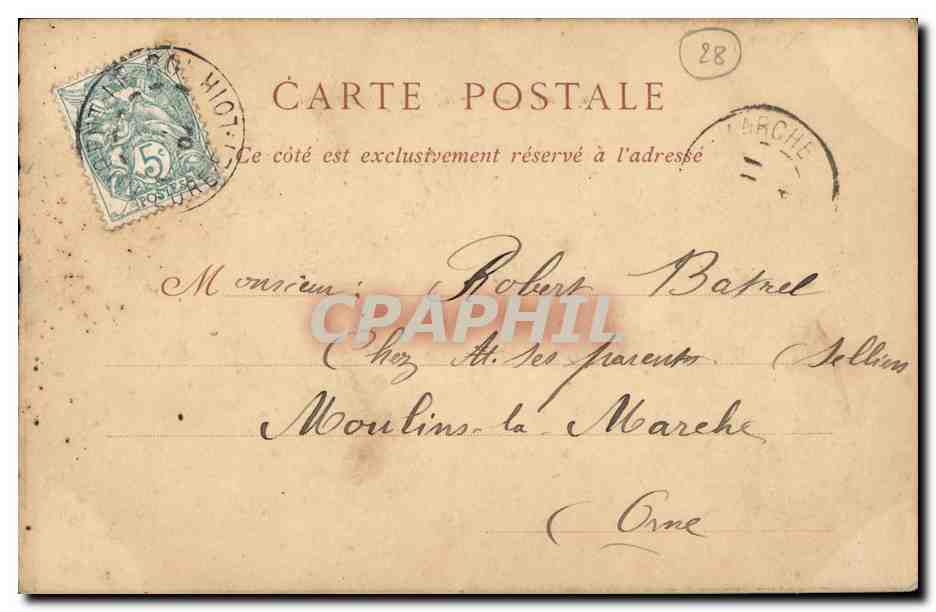 28
CARTE POSTALE
Ce côté est exclusivement réservé à l'adresse
5c
POSTES
ARCHE
11
Monsieur : Robert Batrel
CPAPHIL
Chez M. ses parents (Sellier
Moulins-la-Marche
(Orne